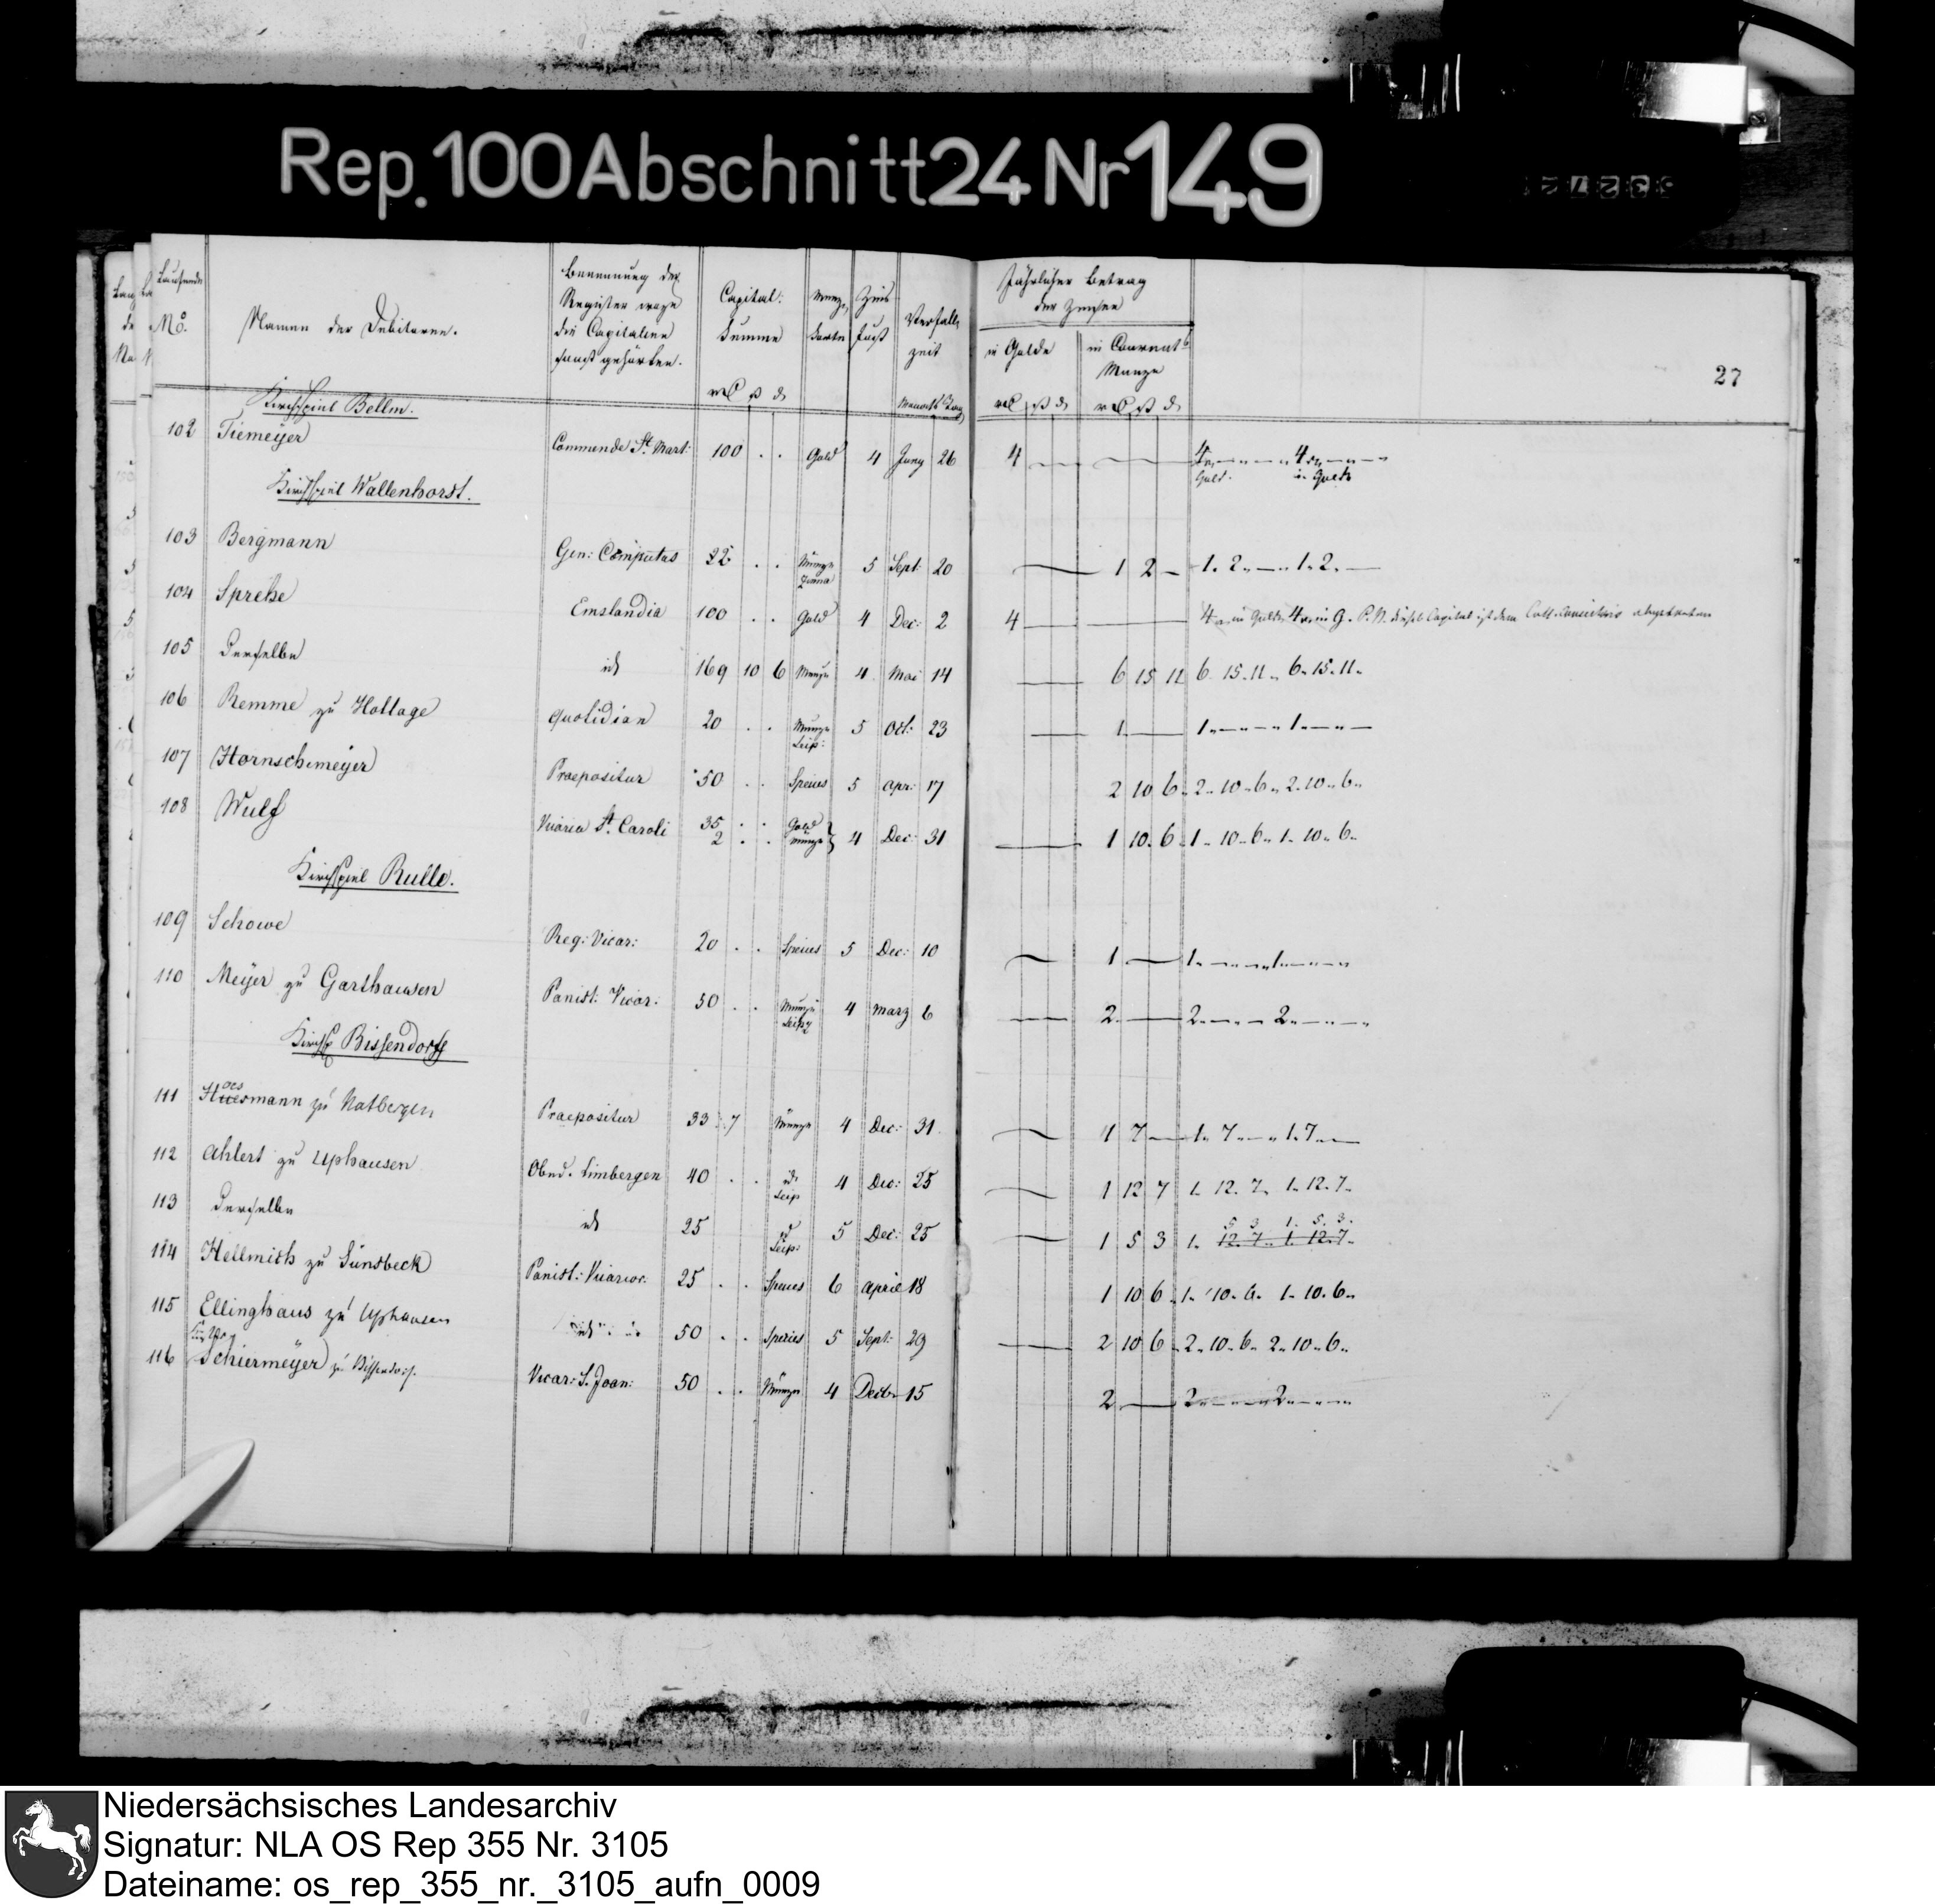 Rep. 100 Abschnitt 24 Nr 149
27
Laufende No.
Namen der Debitoren.
Benennung der
Register worzu
die Capitalien
sonst gehörten.
Capital-
Summe
rℓ ß ₰
Münz-
Sorte
Zins
fuß
Verfall-
zeit
Monath Tag
Jährlicher Betrag
der Zinsen
in Golde
in Courant-
Münze
rℓ ß ₰ rℓ ß ₰
Kirchspiel Bellm.
102 Tiemeÿer Commende St. Mart: 100 . . Gold 4 Juny 26 4 — — 4 „ — „ — „ 4 „ — „ —
Gold. in Golde
Kirchspiel Wallenhorst.
103 Bergmann Gen: Computus 22 . . Münze 5 Sept: 20 — 1 2 — 1. 2. — „ 1. 2. —
104 Sprehe Emslandia 100 . . Gold 4 Dec: 2 4 — — 4 „ in Golde 4 „ in G. P.N. dieses Capital ist dem abgetreten
105 Derselbe id 169 10 6 Münze 4 Mai 14 — 6 15 11 6. 15. 11. „ 6. 15. 11.
106 Remme zu Hollage quotidian 20 . . Münze Leip: 5 Oct: 23 — 1 — 1 „ — „ — „ 1 „ — „ —
107 Hornschemeÿer Praepositur 50 . . Specius 5 Apr: 17 2 10 6 2 „ 10 „ 6 „ 2. 10 „ 6 „
108 Wulf Vicaria St. Caroli 35 . . Gold
2 . . Münze } 4 Dec: 31 — 1 10. 6. 1 „ 10 „ 6 „ 1. 10 „ 6 „
Kirchspiel Rulle.
109 Schowe Reg: Vicar: 20 . . Specius 5 Dec: 10 — 1 — 1. — „ — „ 1 „ — „ —
110 Meÿer zu Garthausen Panist: Vicar: 50 . . Münze Leipz 4 Marz 6 — 2 — 2 „ — „ — 2 „ — „ —
Kirchsp Bissendorff
111 Huesmann zu Natbergen Praepositur 33 7 Münze 4 Dec: 31 — 1 7 — 1. 7 „ — „ 1. 7 „ —
oes
112 Ahlert zu Uphausen Obed. Limbergen 40 . . id. Leip 4 Dec: 25 — 1 12 7 1. 12. 7. 1. 12. 7.
113 Derselbe id 25 id Leip: 5 Dec: 25 — 1 5 3 1. 12. 7. 1. 12. 7.
5 3 1. 5. 3.
114 Hellmich zu Sünsbeck Panist: Vicarior: 25 . . Specius 6 April 18 1 10 6 1. 10. 6. 1. 10. 6.
115 Ellinghaus zu Uphausen id 50 . . Species 5 Sept: 29 — 2 10 6 2. 10. 6. 2. 10. 6.
116 Schiermeÿer zu Bissendorf. Vicar: S. Joan: 50 . . Münze 4 Decbr 15 2 — 2 „ — „ — „ 2 „ — „ —
Niedersächsisches Landesarchiv
Signatur: NLA OS Rep 355 Nr. 3105
Dateiname: os_rep_355_nr._3105_aufn_0009